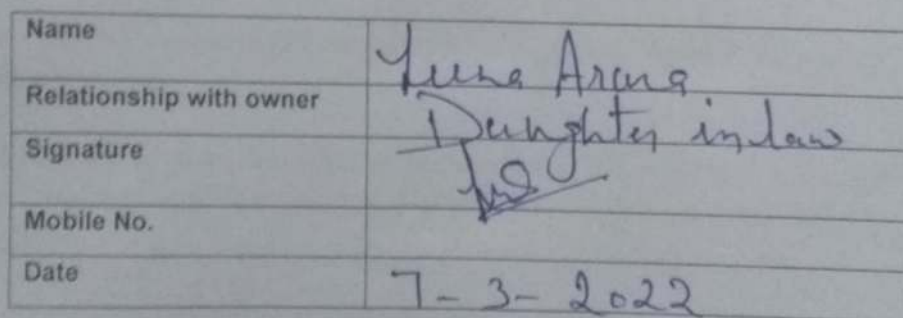 Name
Relationship with owner Daughter in law
Signature
Mobile No.
Date 7-3-2022